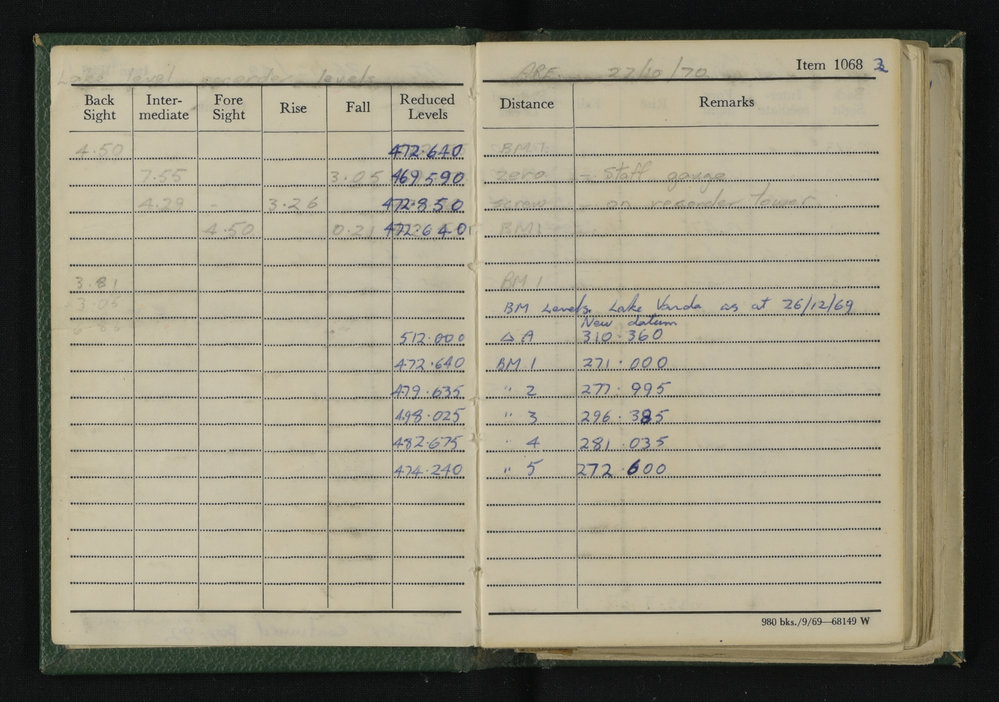 Lake level recorder levels
ARF. 27/10/70
Item 1068 3
Back Sight Inter-mediate Fore Sight Rise Fall Reduced Levels Distance Remarks
4.50 472.640 BM 1
7.55 3.05 469.590 zero - staff gauge
4.29 - 3.26 472.850 screw - on recorder tower
4.50 0.21 472.640 BM1
3.81 BM 1
3.05 BM Levels. Lake Vanda as at 26/12/69
6.86 New datum
512.000 △ A 310.360
472.640 BM 1 271.000
479.635 " 2 277.995
498.025 " 3 296.385
482.675 " 4 281.035
474.240 " 5 272.600
980 bks./9/69—68149 W